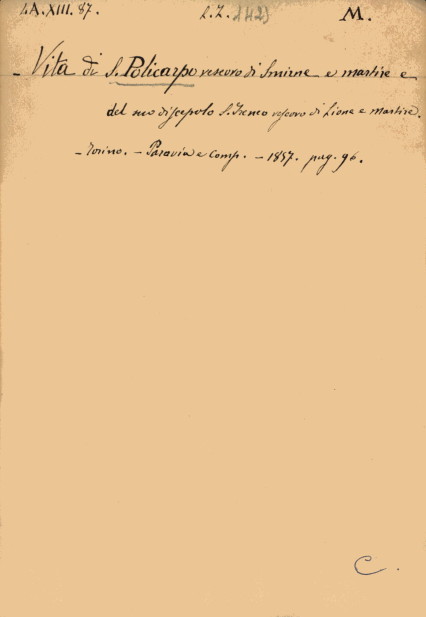 LA.XIII. 87. L.L. 1423 M.
Vita di S. Policarpo vescovo di Smirne e martire e
del suo discepolo S. Ireneo vescovo di Lione e martire.
- Torino. - Paravia e Comp. - 1857. pag. 96.
C.